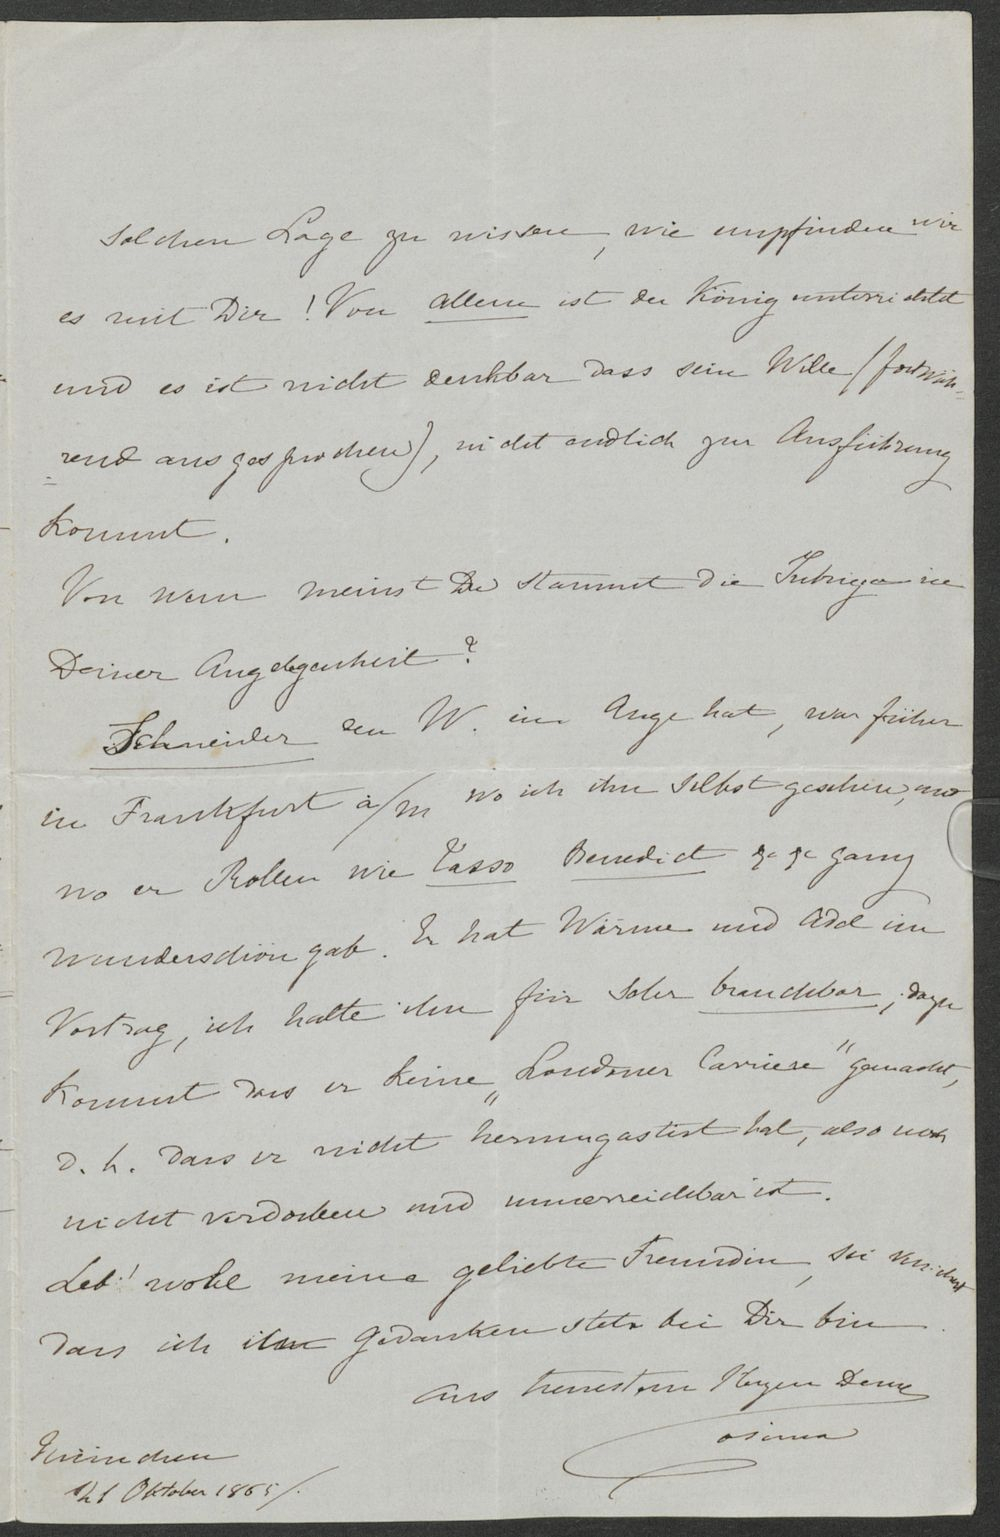 solchen Lage zu wissen, wie empfinden wir
es mit Dir! Von allem ist der König unterrichtet
und es ist nicht denkbar dass sein Wille (fortwäh-
=rend ausgesprochen), nicht endlich zur Ausführung
kommt.
Von wem meinst Du stammt die Intrige in
Deiner Angelegenheit?
Schneider den W. im Auge hat, war früher
in Frankfurt a/m wo ich ihn selbst gesehen, und
wo er Rollen wie Tasso Benedict ganz
wunderschön gab. Er hat Wärme und Adel im
Vortrag, ich halte ihn für sehr brauchbar, dazu
kommt dass er keine „Londoner Carriere" gemacht,
d. h. dass er nicht herumgastirt hat, also noch
nicht verdorben und unerreichbar ist.
Leb! wohl meine geliebte Freundin, sei versichert
dass ich in Gedanken stets bei Dir bin.
Aus treuestem Herzen Deine
Cosima
München
21 Oktober 1865/.